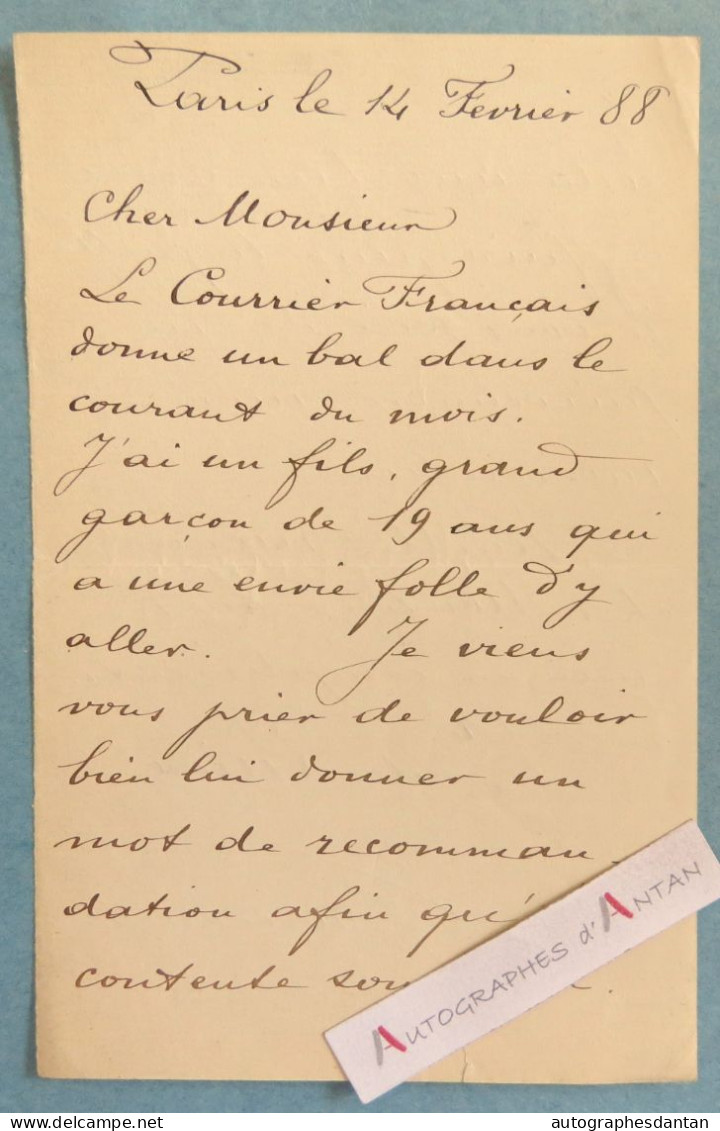 Paris le 14 Fevrier 88
Cher Monsieur
Le Courrier Français
donne un bal dans le
courant du mois.
J'ai un fils, grand
garçon de 19 ans qui
a une envie folle d'y
aller. Je viens
vous prier de vouloir
bien lui donner un
mot de recomman-
dation afin qu'
contente son
AUTOGRAPHES d'ANTAN
delcampe.net
autographesdantan